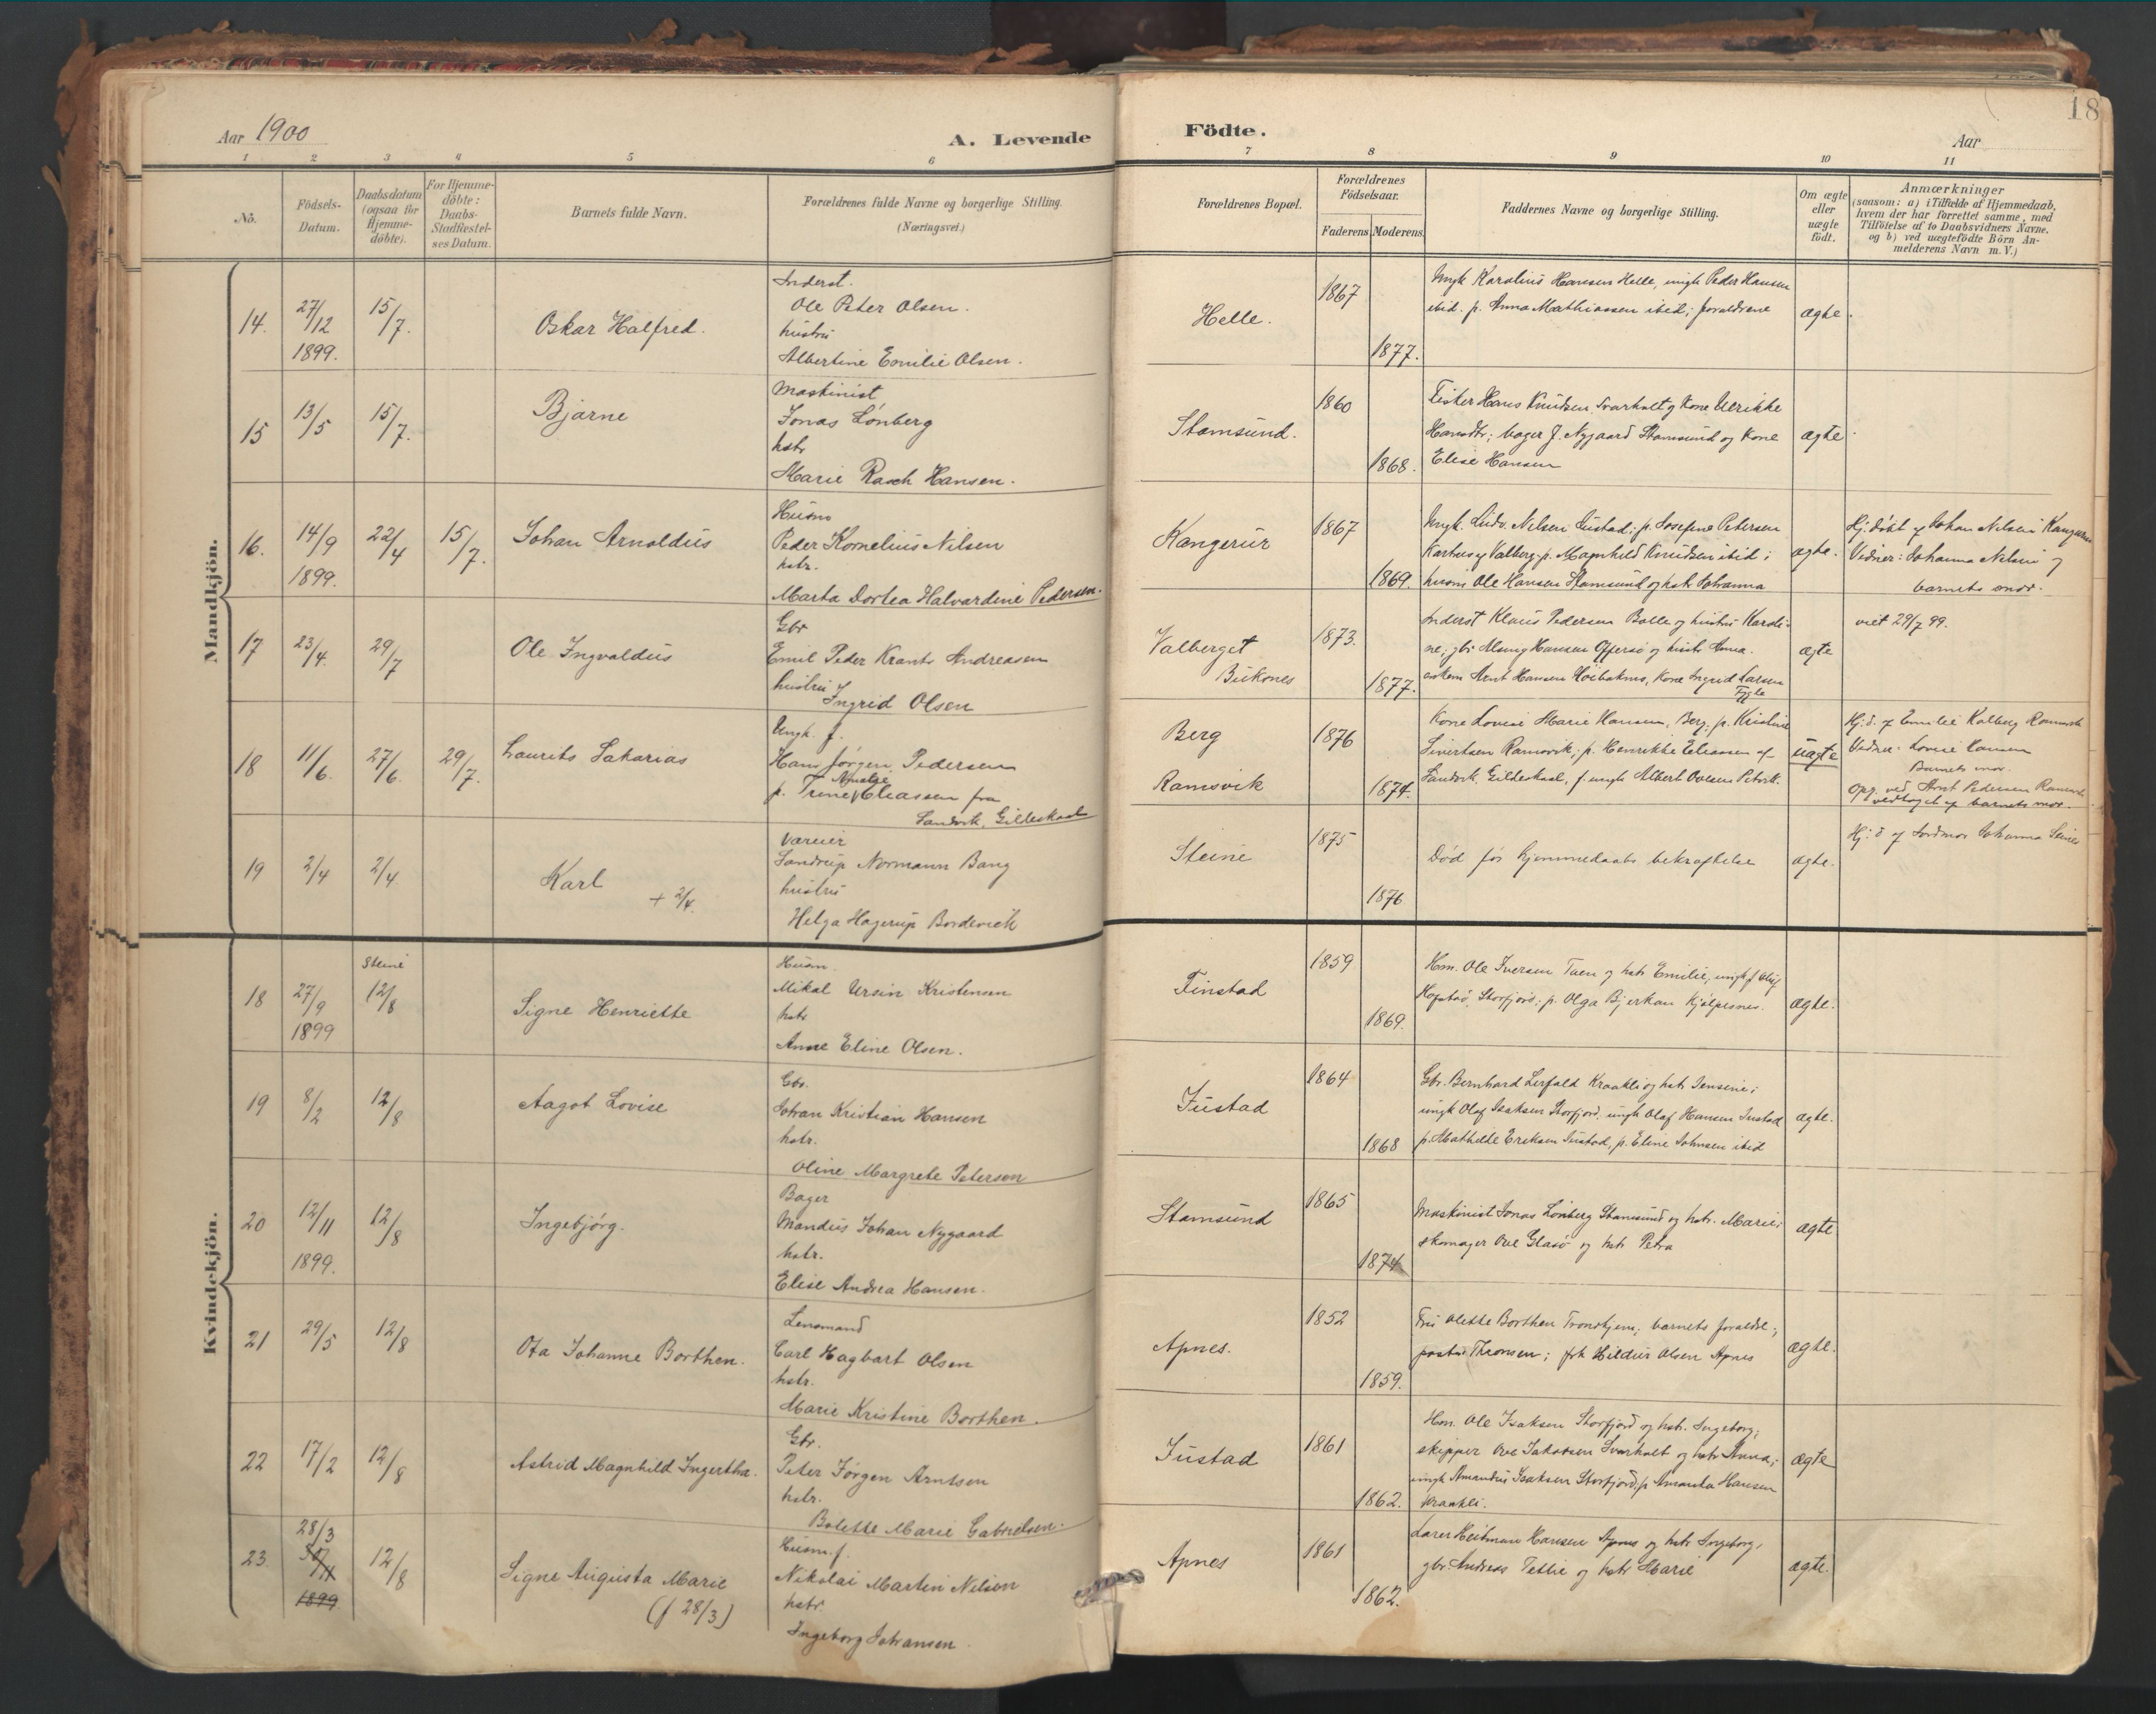 18
Aar 1900
A. Levende Födte.
Aar
1 2 3 4 5 6 7 8 9 10 11
No.
Födsels-Datum.
Daabsdatum (ogsaa for Hjemme-döbte).
For Hjemme-döbte: Daabs-Stadfæstel-ses Datum.
Barnets fulde Navn.
Forældrenes fulde Navne og borgerlige Stilling. (Næringsvei.)
Forældrenes Bopæl.
Forældrenes Födselsaar.
Faderens Moderens
Faddernes Navne og borgerlige Stilling.
Om ægte eller uægte födt.
Anmærkninger
(saasom: a) i Tilfælde af Hjemmedaab,
hvem der har forrettet samme, med
Tilföielse af to Daabsvidners Navne.
og b) ved uægtefödte Börn An-
melderens Navn m. V.)
Mandkjön.
14. 27/12 1899. 15/7. Oskar Halfred.
Inderst.
Ole Peter Olsen.
hustru
Albertine Emilie Olsen.
Helle. 1867 1877.
Ungk Karolius Hansen Helle, ungk Peder Hansen
ibid. p. Anna Mathiassen ibid; forældrene
ægte.
15 13/5 15/7. Bjarne
Maskinist,
Jonas Lönberg
hstr
Marie Rasch Hansen.
Stamsund. 1860 1868.
Fisker Hans Knudsen, Svarholt og Kone Ulrikke
Hansdtr; bager J. Nygaard Stamsund og Kone
Elise Hansen
ægte
16. 14/9 1899. 22/4 15/7. Johan Arnoldus
Husm
Peder Kornelius Nilsen
hstr.
Marta Dortea Halvardine Pedersen.
Kangerur 1867 1869.
Ungk. Ludv. Nilsen Justad; p. Josefine Petersen
Valberg; p. Magnhild Knudsen ibid;
husm Ole Hansen Stamsund og hstr Johanna
ægte.
Hj: döbt af Johan Nilsen Kangerur
Vidner: Johanna Nelsen og
barnets mor.
17 23/4. 29/7 Ole Ingvaldus
Gbr
Emil Peder Krants Andreasen
hustru
Ingrid Olsen
Valberget
Buksnes
1873. 1877.
Inderst Klaus Pedersen Bolle og hustru Karoli-
ne; gbr Hansen Offersö og hustr Anna.
Arnt Hansen, Kone Ingrid Larsen
Fygle
ægte
viet 29/7 99.
18 11/6. 27/6. 29/7. Laurits Sakarias
Ungk. f.
Hans Jörgen Pedersen
Amalie
p. Trine Eliassen fra
Sandvik, Gildeskaal
Berg
Ramsvik
1876 1874.
Kone Lovise Marie Hansen, Berg; p. Kristine
Sivertsen Ramsvik; p. Henrikke Eliassen af
Sandvik Gildeskaal, f. ungk Albert Ovesen
uægte
Hj: d. af Emilie Kalberg Ramsvik
Vidner: Lovise Hansen
Barnets mor.
Opg. ved Arnt Pedersen Ramsvik
vedtaget af barnets mor.
19 2/4 2/4 Karl + 2/4.
Væreier
Sandrup Normann Bang
hustru
Helga Hagerup Bordevick
Steine 1875 1876
Död för hjemmedaabs bekræftelse
ægte.
Hj: d af Jordmor Johanna Steine
Kvindekjön.
Steine
18 27/9 1899 12/8 Signe Henriette
Husm.
Mikal Ursin Kristensen
hstr
Anne Eline Olsen.
Finstad 1859 1869.
Hm. Ole Iversen Tuen og hstr Emilie, ungk f Oluf
Hopstad, Storfjord; p. Olga Bjerkan Kjölpesnes.
ægte.
19 8/2 12/8 Aagot Lovise
Gbr.
Johan Kristian Hansen
hstr.
Oline Margrete Peterson
Justad 1864 1868
Gbr. Bernhard Lerfald Kraakli og hstr Jensine;
ungk Olaf Isaksen Storfjord, ungk Olaf Hansen Justad
p. Mathilde Eriksen Justad, p. Eline Johnsen ibid
ægte.
20 12/11 1899. 12/8 Ingebjörg.
Bager
Mandius Johan Nygaard
hstr.
Elise Andrea Hansen.
Stamsund 1865 1874
Maskinist Jonas Lönberg Stamsund og hstr. Marie;
skomager Ove Glasö og hstr Petra
ægte
21 29/5 12/8 Ota Johanne Borthen.
Lensmand
Carl Hagbart Olsen
hstr.
Marie Kristine Borthen.
Apnes. 1852 1859.
Fru Olette Borthen Trondhjem; barnets forældre;
pastor Thronsen; frk Hildur Olsen Apnes
ægte.
22 17/2 12/8 Astrid Magnhild Ingertha.
Gbr.
Peter Jörgen Arntsen
hstr.
Bolette Marie Gabrielsen.
Justad 1861 1862.
Hm. Ole Isaksen Storfjord og hstr. Ingeborg;
skipper Ove Jakobsen Svarholt og hstr Anna;
ungk Amandus Isaksen Storfjord, p Amanda Hansen
Kraakli.
ægte
23. 28/3 30/11 1899 12/8 Signe Augusta Marie
(f 28/3)
Husm. f.
Nikolai Martin Nilsen
hstr.
Ingeborg Johansen.
Apnes 1861 1862.
Lærer Heitman Hansen Apnes og hstr Ingeborg,
gbr. Andreas Tetlie og hstr Marie
ægte.